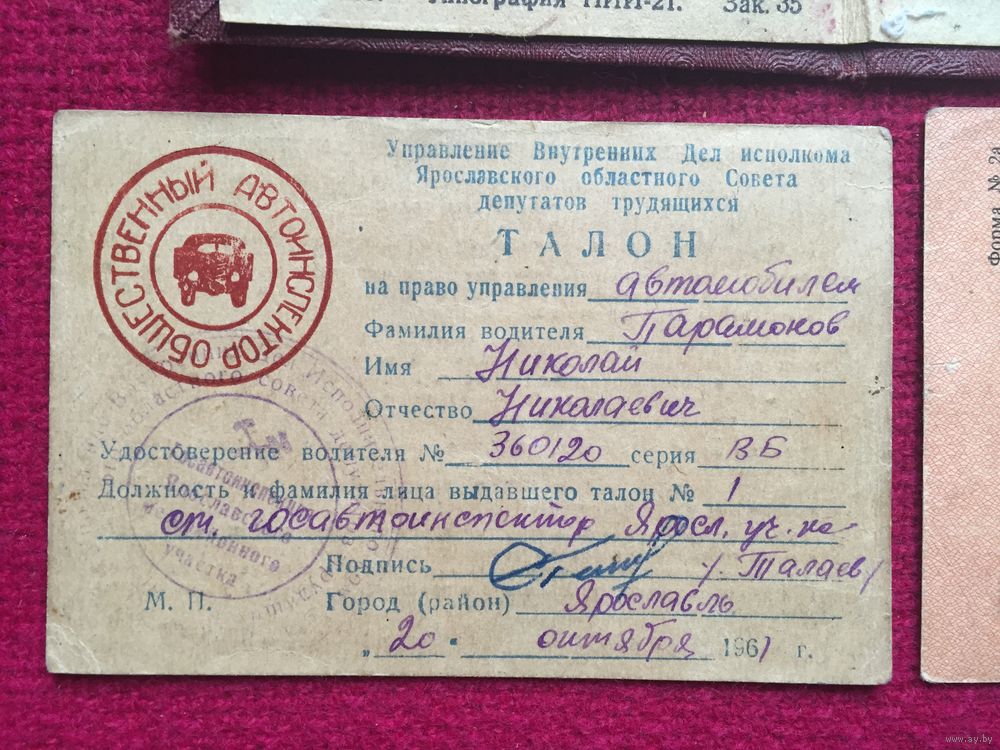 Типография ПИИ-21. Зак. 35
ОБЩЕСТВЕННЫЙ АВТОИНСПЕКТОР
Управление Внутренних Дел исполкома
Ярославского областного Совета
депутатов трудящихся
ТАЛОН
на право управления автомобилем
Фамилия водителя Парамонов
Имя Николай
Отчество Николаевич
Удостоверение водителя № 360120 серия ВБ
Должность и фамилия лица выдавшего талон № 1
ст. госавтоинспектор Яросл. уч-ка
Подпись / Талаев /
М. П. Город (район) Ярославль
„20" октября 1961 г.
Форма № 2а
www.ay.by